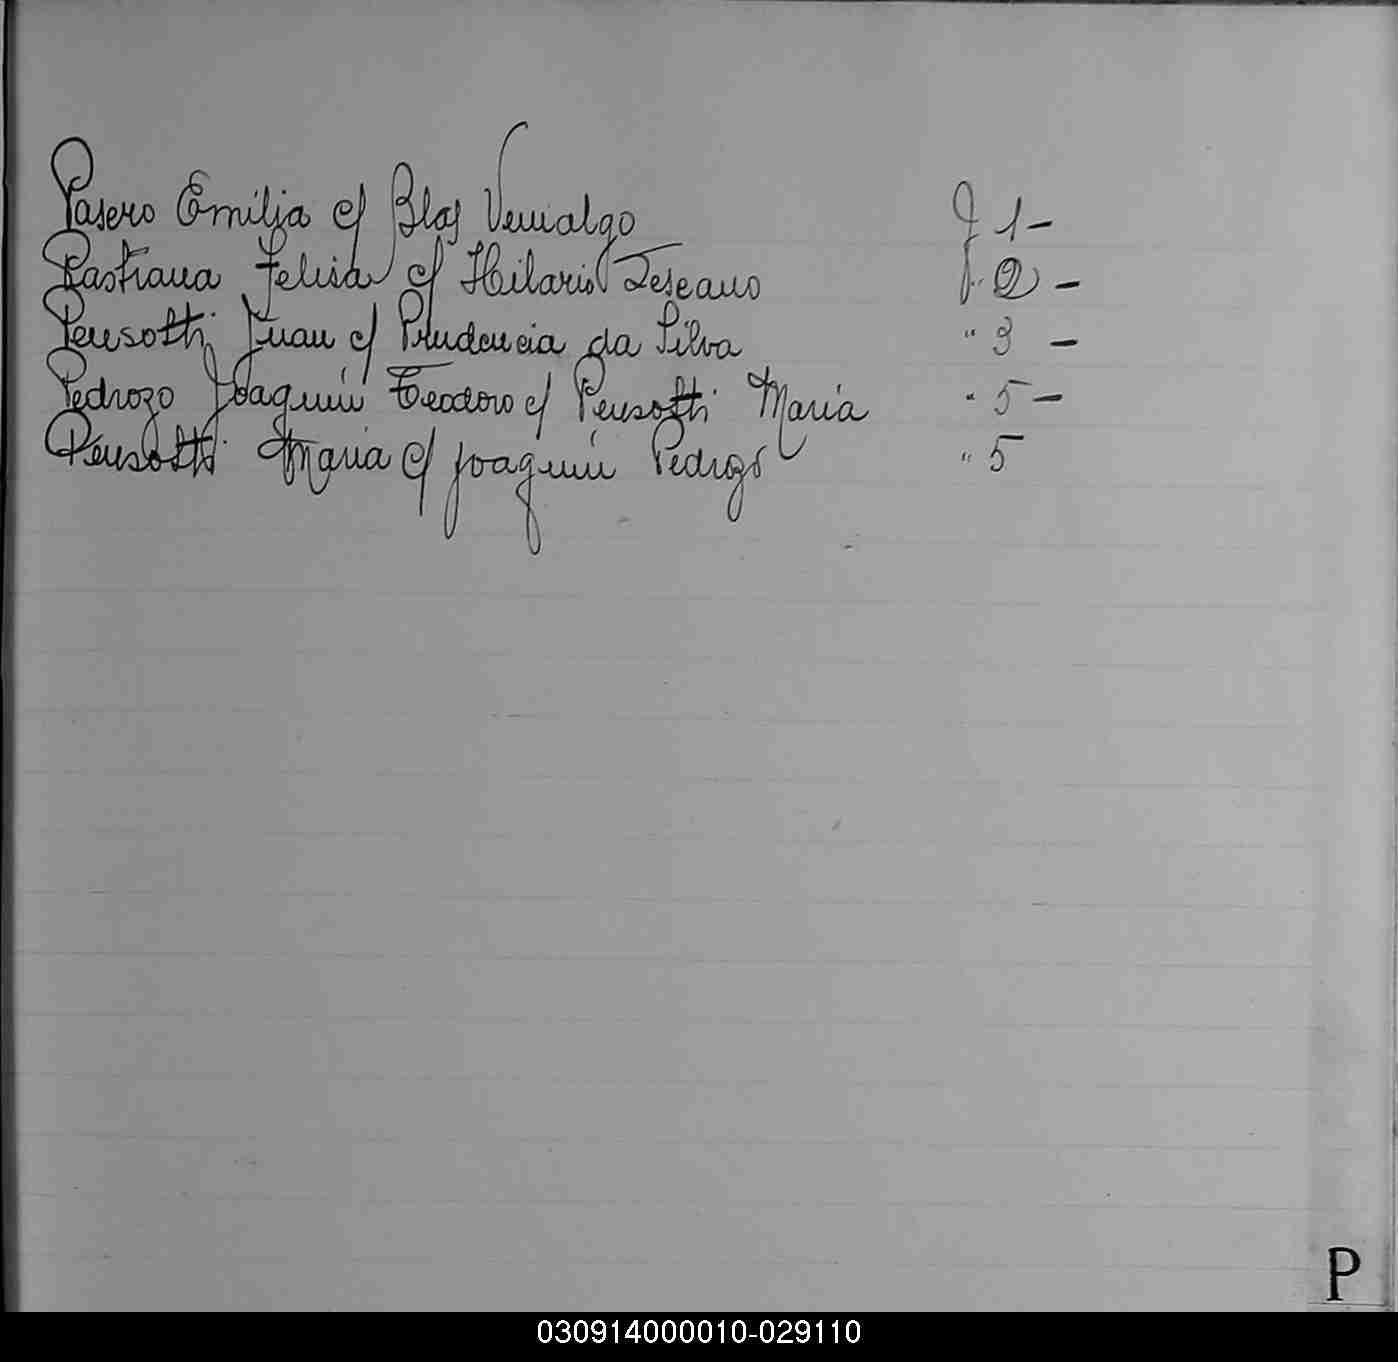 Pasero Emilia c/ Blas Venialgo f 1-
Pastiana Felisa c/ Hilario f. 2 -
Pensotti Juan c/ Prudencia da Silva " 3 -
Pedrozo Joaquín Teodoro c/ Pensotti María " 5-
Pensotti María c/ Joaquín Pedrozo " 5
P
030914000010-029110